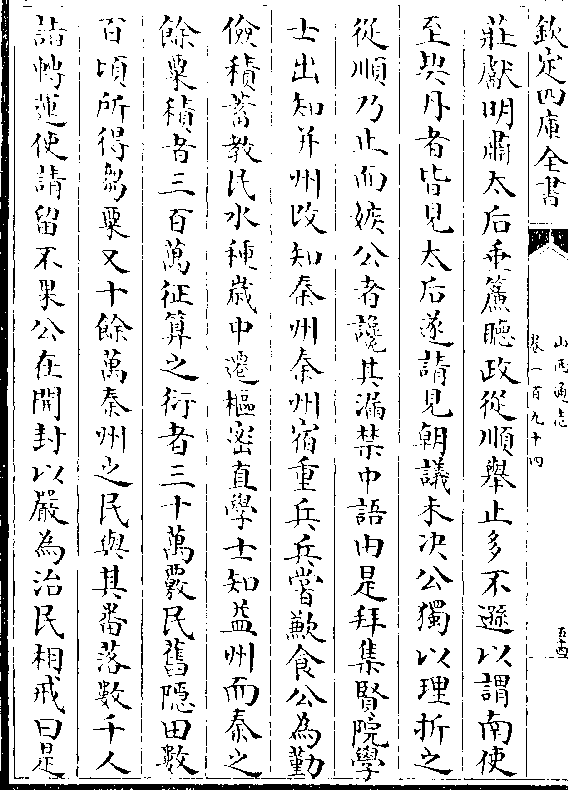 欽定四庫全書
山西通志
卷一百九十四
莊獻明肅太后垂簾聽政從順舉止多不遜以謂南使
至契丹者皆見太后遂請見朝議未決公獨以理折之
從順乃止而嫉公者讒其漏禁中語由是拜集賢院學
士出知并州改知秦州秦州宿重兵兵嘗歉食公為勤
儉積蓄教民水種歲中遷樞密直學士知益州而秦之
餘粟積者三百萬征算之衍者三十萬覈民舊隱田數
百頃所得芻粟又十餘萬秦州之民與其番落數千人
詣轉運使請留不果公在開封以嚴為治民相戒曰是